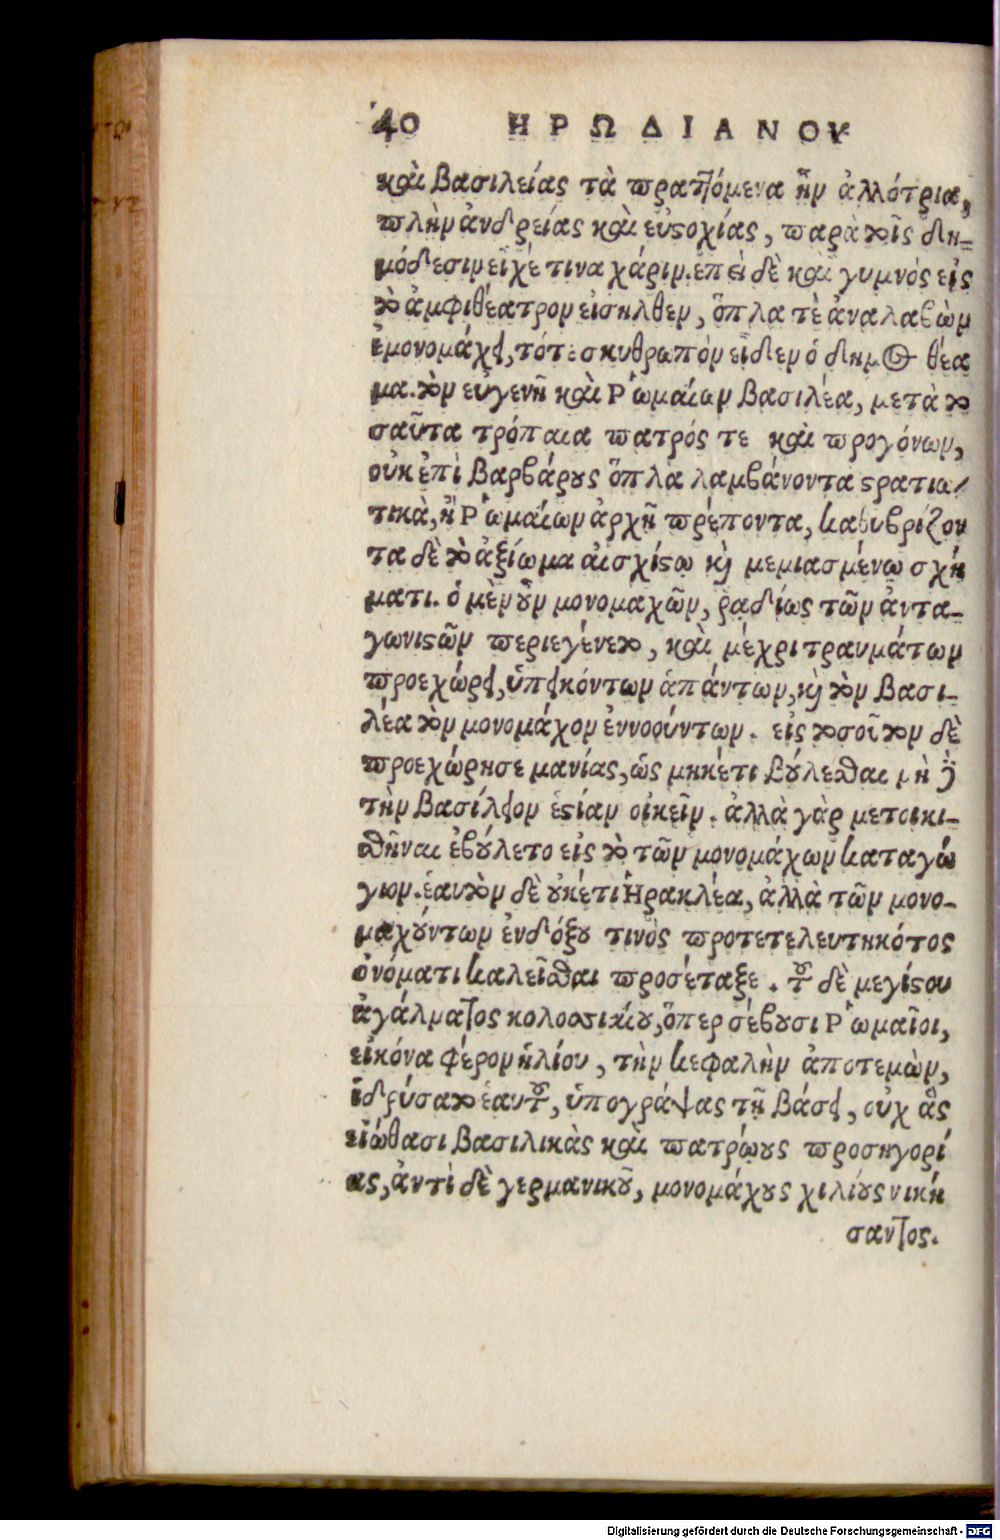 40 ΗΡΩΔΙΑΝΟΥ
καὶ βασιλείας τὰ πραττόμενα ἦν ἀλλότρια,
πλὴν ἀνδρείας καὶ εὐστοχίας, παρὰ τοῖς δη-
μόδεσιν εἶχέ τινα χάριν. ἐπεὶ δὲ καὶ γυμνὸς εἰς
τὸ ἀμφιθέατρον εἰσῆλθεν, ὅπλα τὲ ἀναλαβὼν
ἐμονομάχει, τότε σκυθρωπὸν εἶδεν ὁ δημος θέα
μα. τὸν εὐγενῆ καὶ Ῥωμαίων βασιλέα, μετὰ το
σαῦτα τρόπαια πατρός τε καὶ προγόνων,
οὐκ ἐπὶ βαρβάρους ὅπλα λαμβάνοντα στρατιω-
τικὰ, ἢ Ῥωμαίων ἀρχῇ πρέποντα, καθυβρίζον
τα δὲ τὸ ἀξίωμα αἰσχίστῳ καὶ μεμιασμένῳ σχή
ματι. ὁ μὲν οὖν μονομαχῶν, ῥαδίως τῶν ἀντα-
γωνιστῶν περιεγένετο, καὶ μέχρι τραυμάτων
προεχώρει, ὑπεικόντων ἁπάντων, καὶ τὸν βασι-
λέα τὸν μονομάχον ἐννοούντων. εἰς τοσοῦτον δὲ
προεχώρησε μανίας, ὡς μηκέτι βούλεσθαι μὴ δὲ
τὴν βασίλειον ἑστίαν οἰκεῖν. ἀλλὰ γὰρ μετοικι-
σθῆναι ἐβούλετο εἰς τὸ τῶν μονομάχων καταγώ
γιον. ἑαυτὸν δὲ οὐκέτι Ἡρακλέα, ἀλλὰ τῶν μονο-
μαχούντων ἐνδόξου τινὸς προτετελευτηκότος
ὀνόματι καλεῖσθαι προσέταξε. τοῦ δὲ μεγίστου
ἀγάλματος κολοσσιαίου, ὅπερ σέβουσι Ῥωμαῖοι,
εἰκόνα φέρον ἡλίου, τὴν κεφαλὴν ἀποτεμὼν,
ἱδρύσατο ἑαυτοῦ, ὑπογράψας τῇ βάσει, οὐχ ἃς
εἰώθασι βασιλικὰς καὶ πατρῴους προσηγορί
ας, ἀντὶ δὲ γερμανικοῦ, μονομάχους χιλίους νική
σαντος.
Digitalisierung gefördert durch die Deutsche Forschungsgemeinschaft - DFG